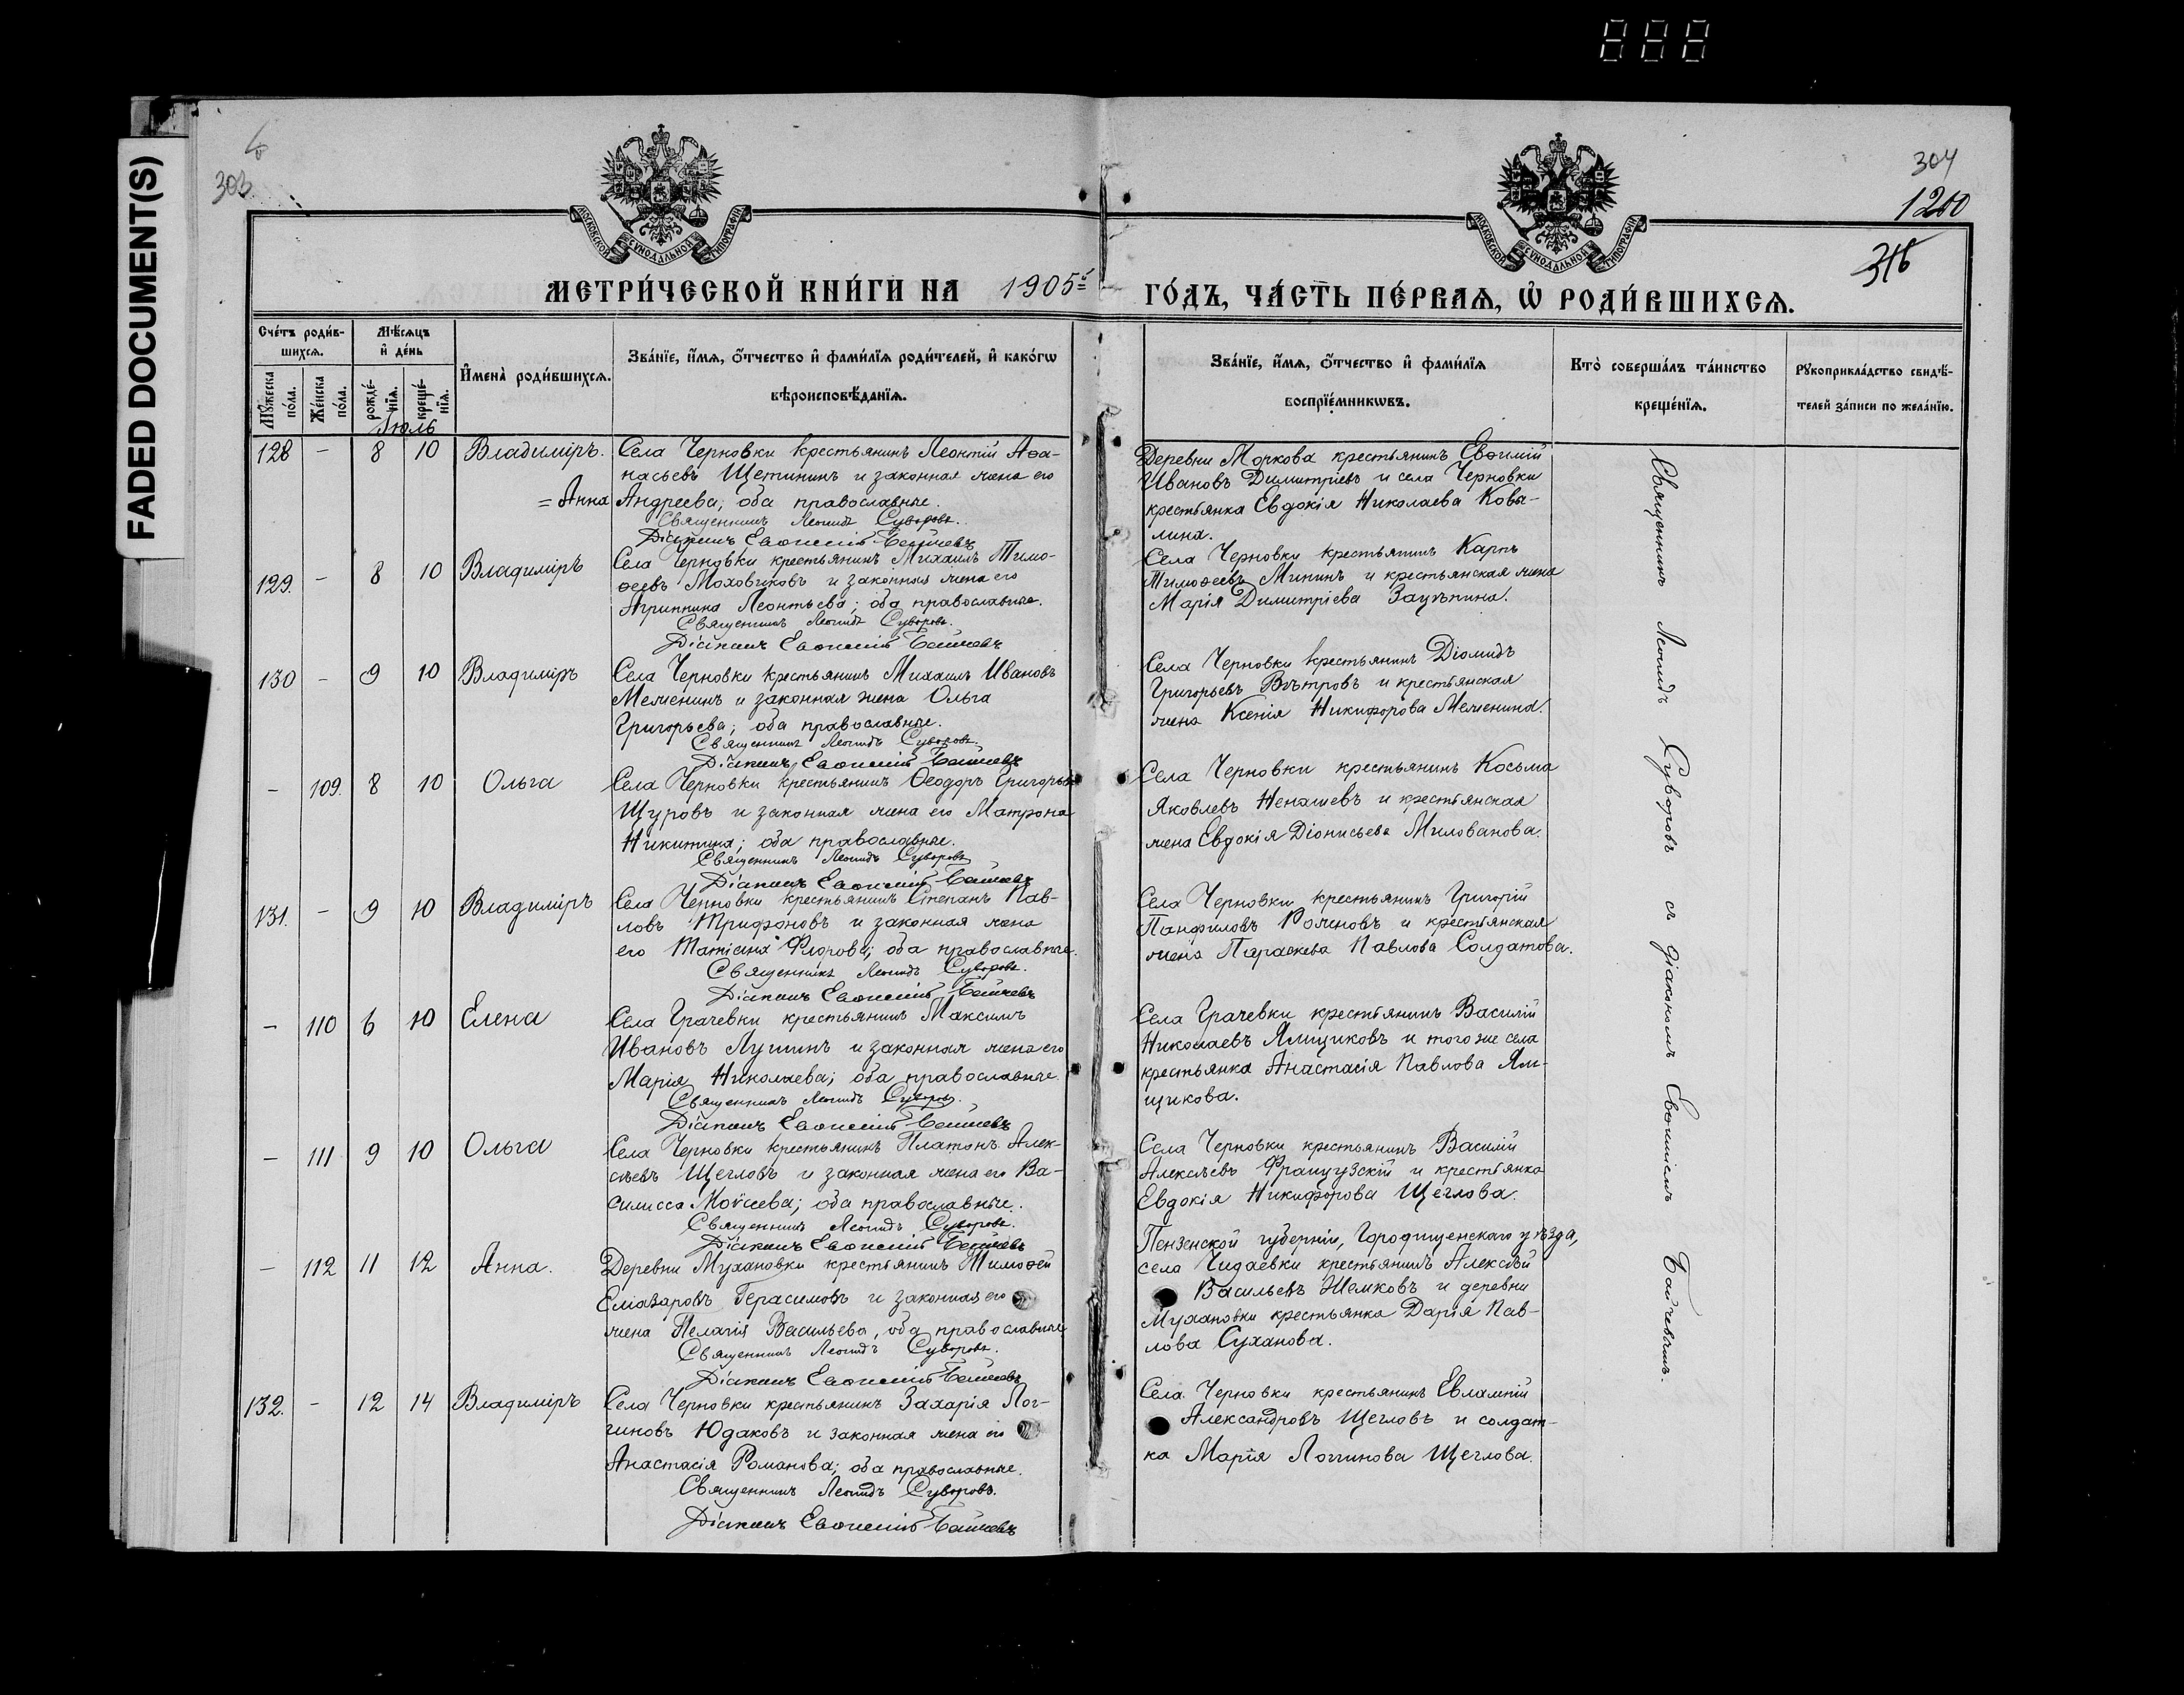 FADED DOCUMENT(S)
303
304
1200
316
МОСКОВСКОЙ СѴНОДАЛЬНОЙ ТИПОГРАФІИ
МОСКОВСКОЙ СѴНОДАЛЬНОЙ ТИПОГРАФІИ
МЕТРИ́ЧЕСКОЙ КНИ́ГИ НА 1905й
ГО́ДЪ, ЧА́СТЬ ПЕ́РВАѦ, Ѡ РОДИ́ВШИХСѦ.
Сче́тъ роди́в-
шихсѧ.
Мѣ́сѧцъ
и҆ де́нь
Мꙋ́жеска по́ла.
Же́нска по́ла.
рожде́-
нїѧ.
креще́-
нїѧ.
И҆мена̀ роди́вшихсѧ.
Зва́нїе, и҆́мѧ, ѻ҆́тчество и҆ фами́лїѧ роди́телей, и҆ како́гѡ
вѣроисповѣ́данїѧ.
Зва́нїе, и҆́мѧ, ѻ҆́тчество и҆ фами́лїѧ
воспрїе́мникѡвъ.
Кто̀ соверша́лъ та́инство
креще́нїѧ.
Рꙋкоприкла́дство свидѣ́-
телей за́писи по жела́нїю.
Июль
128 - 8 10 Владиміръ.
Села Черновки крестьянинъ Леонтій Аѳа-
насьевъ Щетининъ и законная жена его
=Анна Андреева; оба православные.
Священникъ Леонидъ Суворовъ.
Діаконъ Евѳимій Байчевъ
Деревни Моркова крестьянинъ Евѳимій
Ивановъ Димитріевъ и села Черновки
крестьянка Евдокія Николаева Ковы-
лина.
129. - 8 10 Владиміръ
Села Черновки крестьянинъ Михаилъ Тимо-
ѳеевъ Маховиковъ и законная жена его
Агриппина Леонтьева; оба православные.
Священникъ Леонидъ Суворовъ.
Діаконъ Евѳимій Байчевъ
Села Черновки крестьянинъ Карпъ
Тимоѳеевъ Мининъ и крестьянская жена
Марія Димитріева
130 - 9 10 Владиміръ
Села Черновки крестьянинъ Михаилъ Ивановъ
Меленинъ и законная жена Ольга
Григорьева; оба православные.
Священникъ Леонидъ Суворовъ
Діаконъ Евѳимій Байчевъ
Села Черновки крестьянинъ Діомидъ
Григорьевъ Вѣтровъ и крестьянская
жена Ксенія Никифорова Меленина.
- 109. 8 10 Ольга
Села Черновки крестьянинъ Ѳеодоръ Григорьевъ
Щуровъ и законная жена его Матрона
Никитина; оба православные.
Священникъ Леонидъ Суворовъ
Діаконъ Евѳимій Байчевъ
Села Черновки крестьянинъ Косьма
Яковлевъ Ненашевъ и крестьянская
жена Евдокія Діонисьева Милованова.
131. - 9 10 Владиміръ
Села Черновки крестьянинъ Степанъ Пав-
ловъ Трифоновъ и законная жена
его Татіана Флорова; оба православные.
Священникъ Леонидъ Суворовъ.
Діаконъ Евѳимій Байчевъ
Села Черновки крестьянинъ Григорій
Панфиловъ и крестьянская
жена Параскева Павлова Солдатова.
- 110 6 10 Елена
Села Грачевки крестьянинъ Максимъ
Ивановъ Лушинъ и законная жена его
Марія Николаева; оба православные.
Священникъ Леонидъ Суворовъ.
Діаконъ Евѳимій Байчевъ
Села Грачевки крестьянинъ Василій
Николаевъ Ямщиковъ и того же села
крестьянка Анастасія Павлова Ям-
щикова.
- 111 9 10 Ольга
Села Черновки крестьянинъ Платонъ Алек-
сѣевъ Щегловъ и законная жена его Ва-
силисса Моѵсеева; оба православные.
Священникъ Леонидъ Суворовъ.
Діаконъ Евѳимій Байчевъ
Села Черновки крестьянинъ Василій
Алексѣевъ Французскій и крестьянка
Евдокія Никифорова Щеглова.
- 112 11 12 Анна.
Деревни Мухановки крестьянинъ Тимоѳей
Еліазаровъ Герасимовъ и законная его
жена Пелагія Васильева, оба православные
Священникъ Леонидъ Суворовъ.
Діаконъ Евѳимій Байчевъ
Пензенской губерніи, Городищенскаго уѣзда,
села Чидаевки крестьянинъ Алексѣй
Васильевъ Шемковъ и деревни
Мухановки крестьянка Дарія Пав-
лова Суханова.
132. - 12 14 Владиміръ
Села Черновки крестьянинъ Захарія Лог-
гиновъ Юдаковъ и законная жена его
Анастасія Романова; оба православные.
Священникъ Леонидъ Суворовъ.
Діаконъ Евѳимій Байчевъ
Села Черновки крестьянинъ Евлампій
Александровъ Щегловъ и солдат-
ка Марія Логгинова Щеглова.
Священникъ Леонидъ Суворовъ съ діакономъ Евѳиміемъ Байчевымъ.